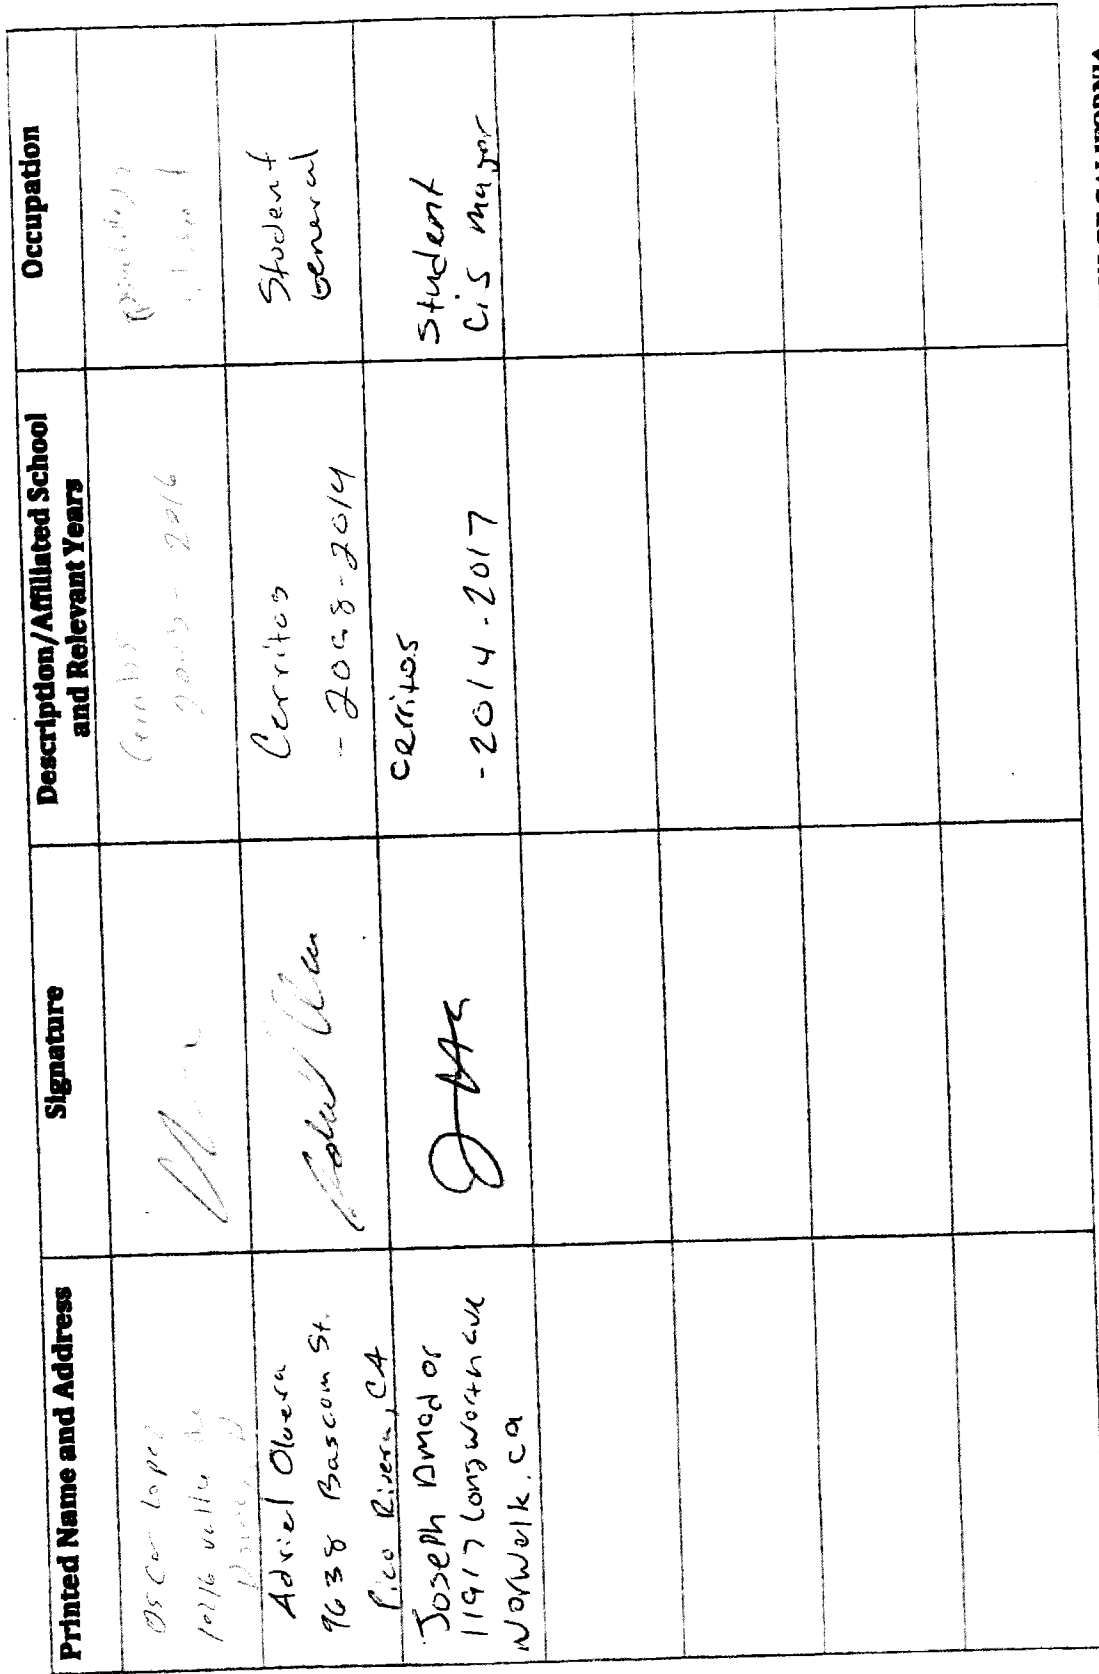 Printed Name and Address
Signature
Description/Affiliated School
and Relevant Years
Occupation
Oscar Lopez
2016
Adriel Olvera
9638 Bascom St.
Pico Rivera, CA
Cerritos
- 2008-2014
Student
General
Joseph Amador
11917 Longworth ave
Norwalk. ca
Cerritos
- 2014-2017
Student
Cis major
CALIFORNIA